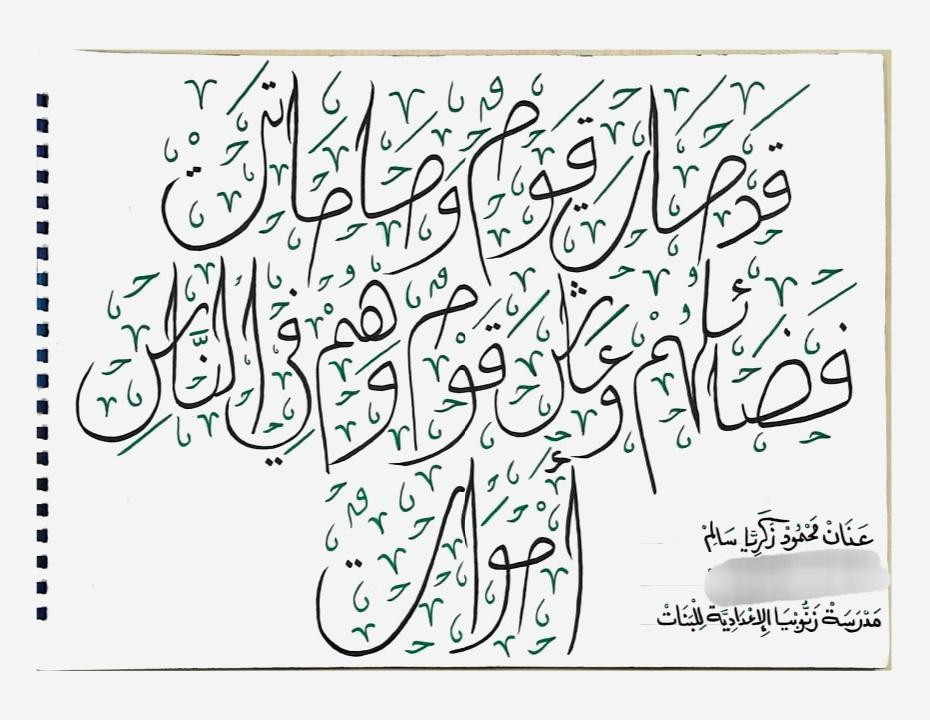 قد مات قوم وما ماتت
فضائلهم وعاش قوم وهم في الناس
أموات
عَنَانْ مَحْمُودْ زَكَرِيَّا سَالِمْ
مَدْرَسَةْ زَنُّوبْيَا الإِعْدَادِيَّة لِلْبَنَاتْ